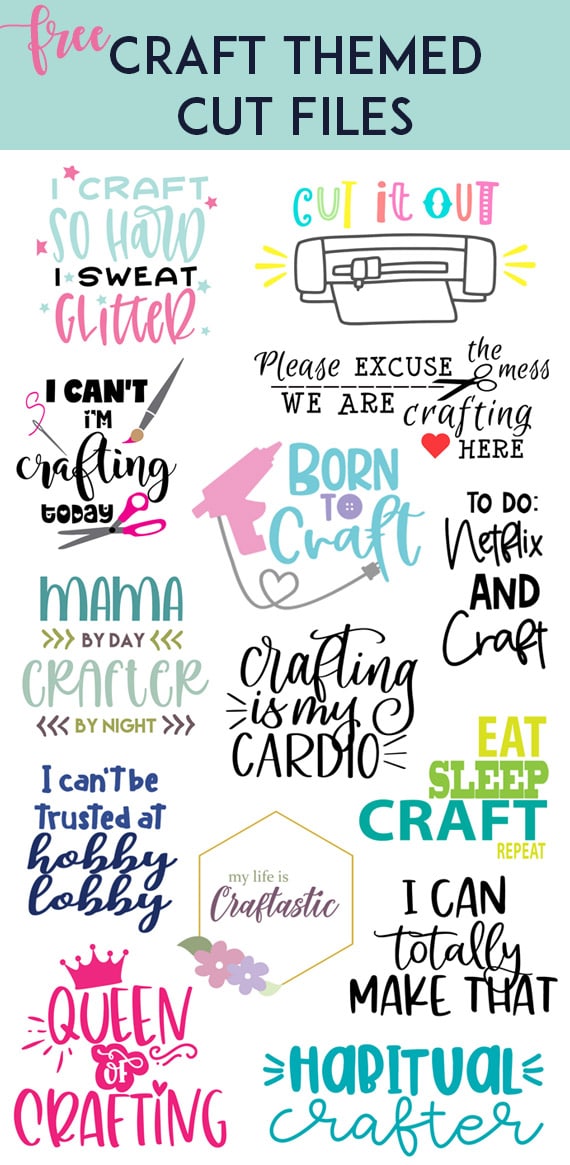 free CRAFT THEMED
CUT FILES
I CRAFT
SO HARD
I SWEAT
GLITTER
CUT it OUT
I CAN'T
I'M
crafting
today
Please EXCUSE the mess
WE ARE crafting
HERE
BORN
TO
Craft
TO DO:
Netflix
AND
Craft
MAMA
BY DAY
CRAFTER
BY NIGHT
crafting
is my
CARDIO
EAT
SLEEP
CRAFT
REPEAT
I can't be
trusted at
hobby
lobby
my life is
Craftastic
I CAN
totally
MAKE THAT
QUEEN
OF
CRAFTING
HABITUAL
crafter